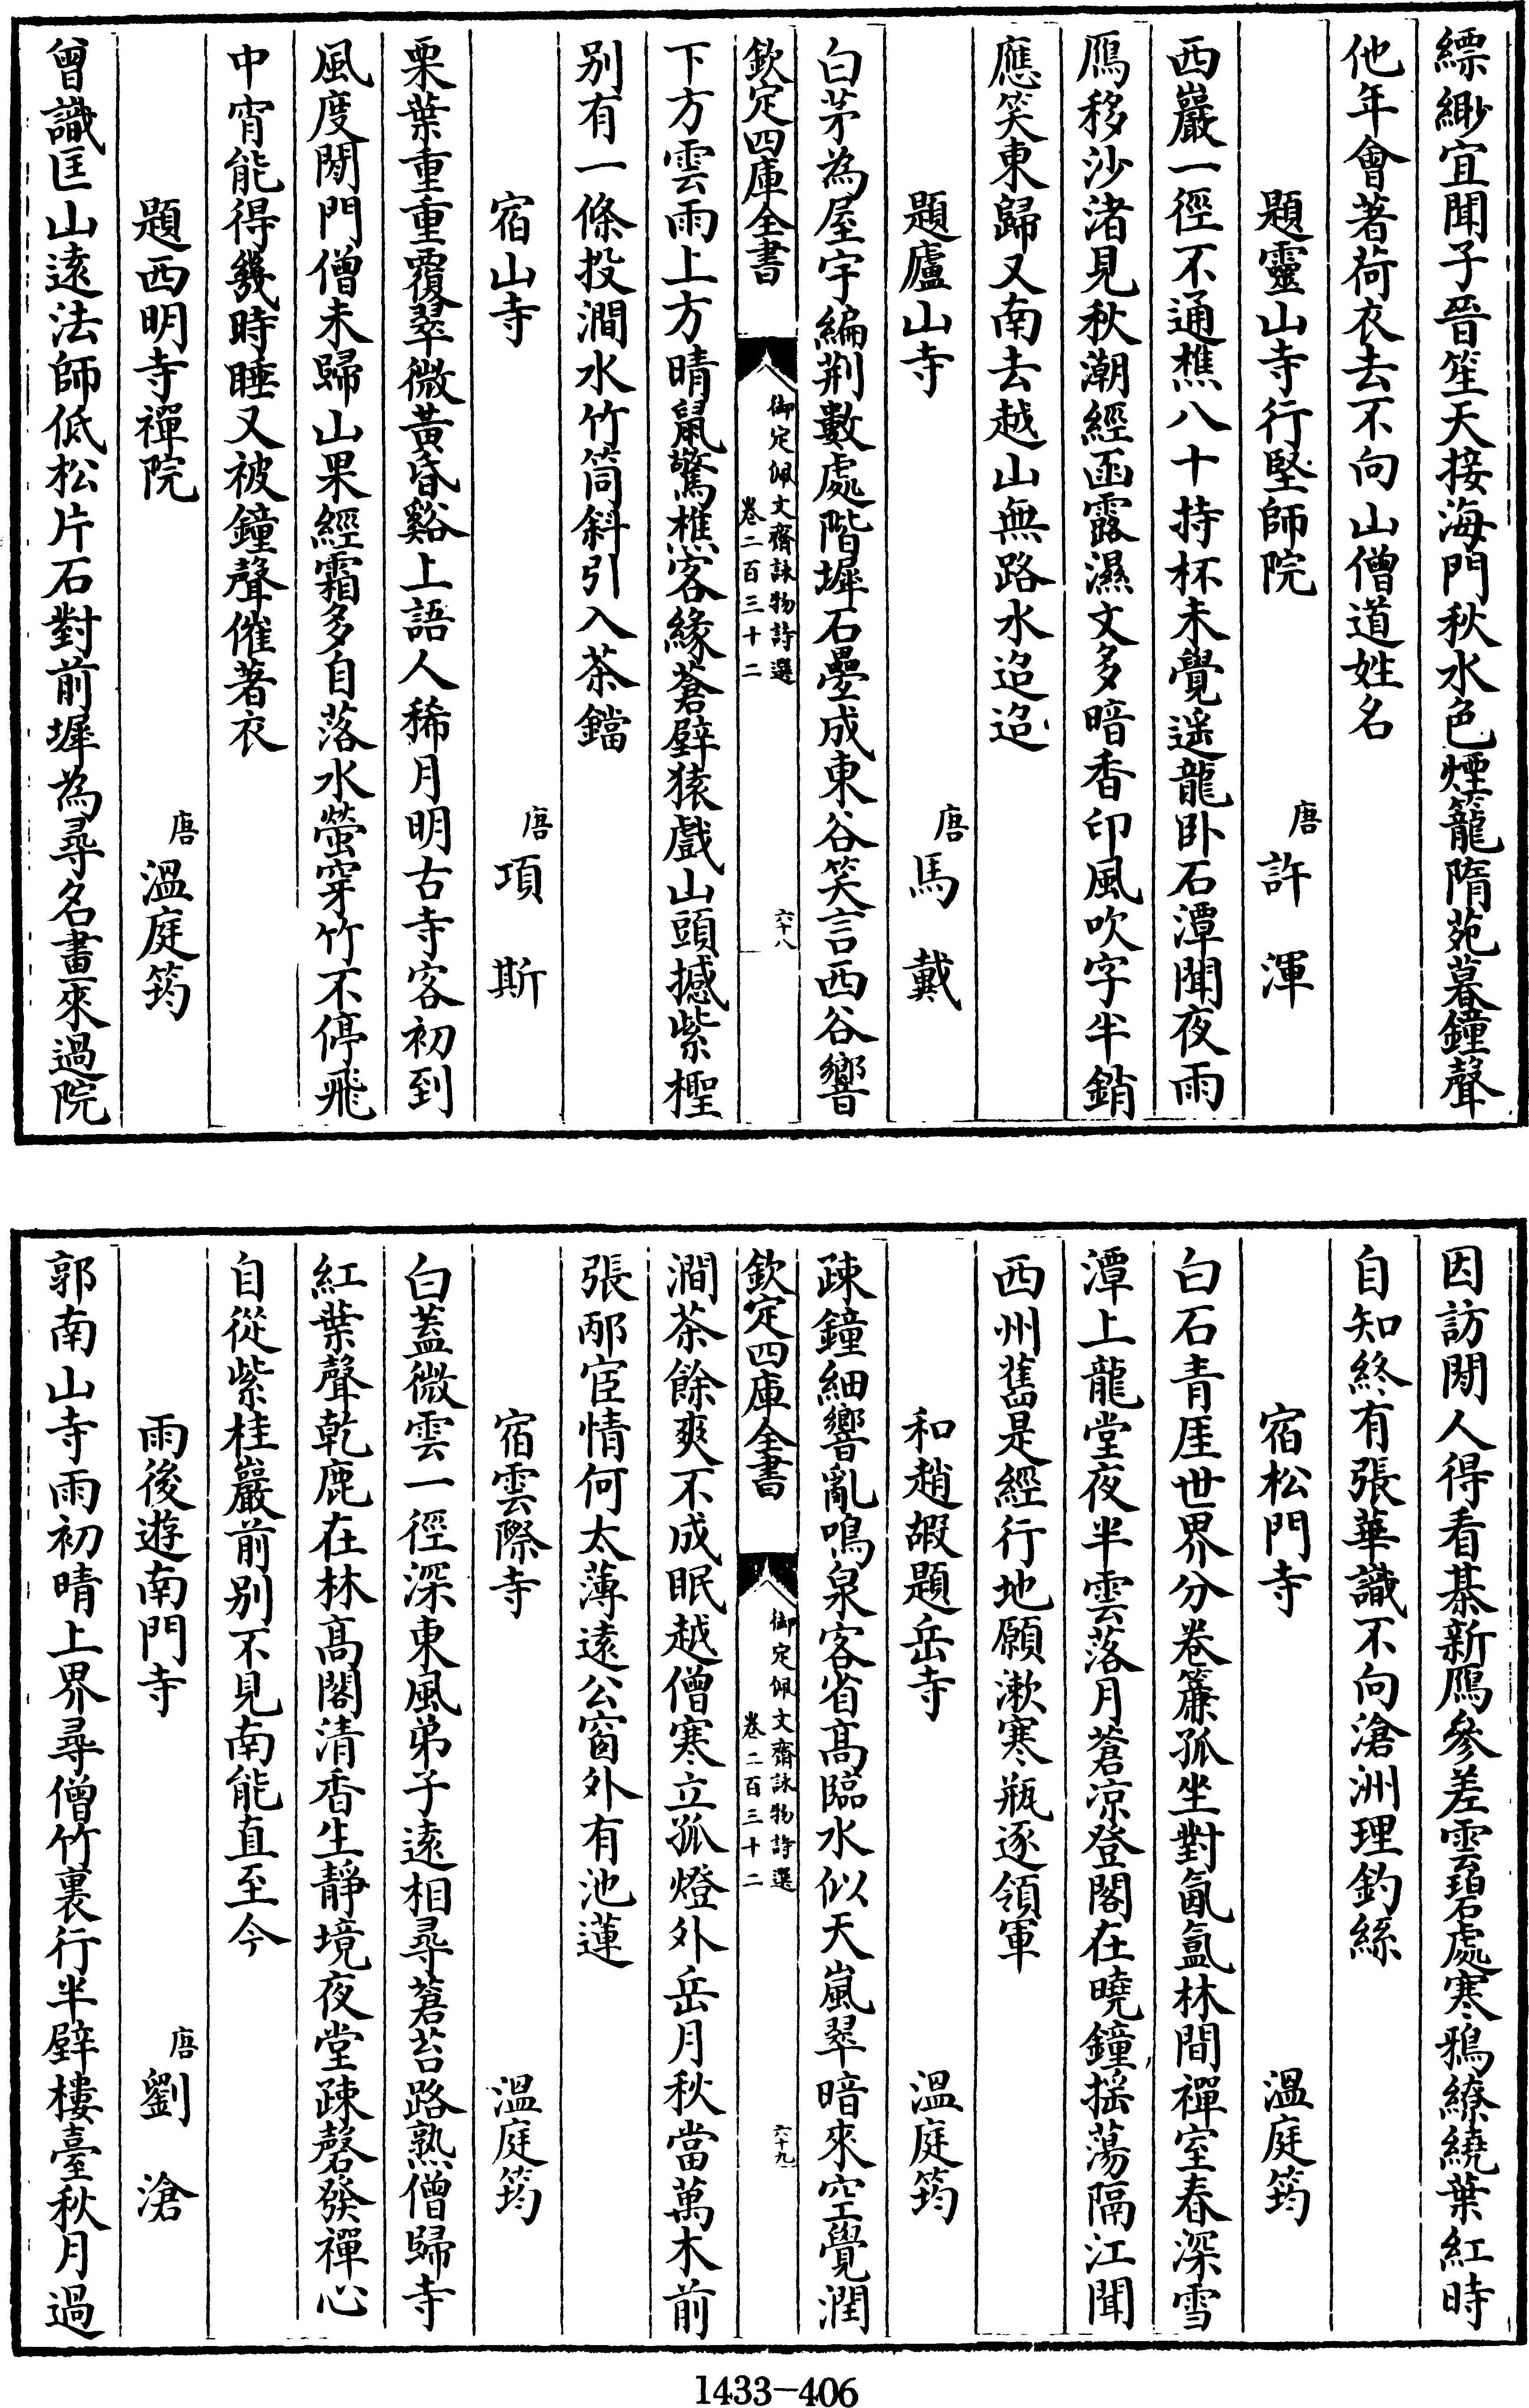 縹緲宜聞子晉笙天接海門秋水色煙籠隋苑暮鐘聲
他年會著荷衣去不向山僧道姓名
題靈山寺行堅師院
唐許渾
西巖一徑不通樵八十持杯未覺遥龍卧石潭聞夜雨
鴈移沙渚見秋潮經函露濕文多暗香印風吹字半銷
應笑東歸又南去越山無路水迢迢
題廬山寺
唐馬戴
白茅為屋宇編荆數處階墀石疊成東谷笑言西谷響
欽定四庫全書
御定佩文齋詠物詩選
卷二百三十二
六十八
下方雲雨上方晴鼠驚樵客緣蒼壁猿戲山頭撼紫檉
别有一條投澗水竹筒斜引入茶鐺
宿山寺
唐項斯
栗葉重重覆翠微黃昏谿上語人稀月明古寺客初到
風度閑門僧未歸山果經霜多自落水螢穿竹不停飛
中宵能得幾時睡又被鐘聲催著衣
題西明寺禪院
唐溫庭筠
曾識匡山遠法師低松片石對前墀為尋名畫來過院
因訪閑人得看棊新鴈參差雲碧處寒鴉繚繞葉紅時
自知終有張華識不向滄洲理釣絲
宿松門寺
溫庭筠
白石青厓世界分卷簾孤坐對氤氳林間禪室春深雪
潭上龍堂夜半雲落月蒼凉登閣在曉鐘揺蕩隔江聞
西州舊是經行地願漱寒瓶逐領軍
和趙嘏題岳寺
溫庭筠
疎鐘細響亂鳴泉客省高臨水似天嵐翠暗來空覺潤
欽定四庫全書
御定佩文齋詠物詩選
卷二百三十二
六十九
澗茶餘爽不成眠越僧寒立孤燈外岳月秋當萬木前
張邴宦情何太薄遠公窗外有池蓮
宿雲際寺
溫庭筠
白蓋微雲一徑深東風弟子遠相尋蒼苔路熟僧歸寺
紅葉聲乾鹿在林高閣清香生靜境夜堂疎磬發禪心
自從紫桂巖前别不見南能直至今
雨後遊南門寺
唐劉滄
郭南山寺雨初晴上界尋僧竹裏行半壁樓臺秋月過
1433-406